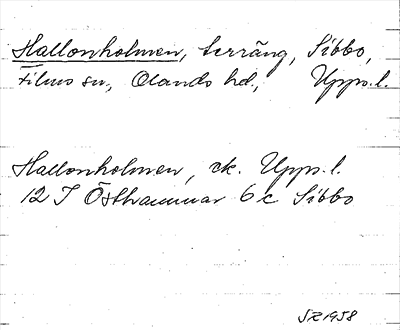 Hallonholmen, terräng, Sibbo,
Films sn, Olands hd, Upps. l.
Hallonholmen, ek. Upps. l.
12 I Östhammar 6 c Sibbo
SZ 1958